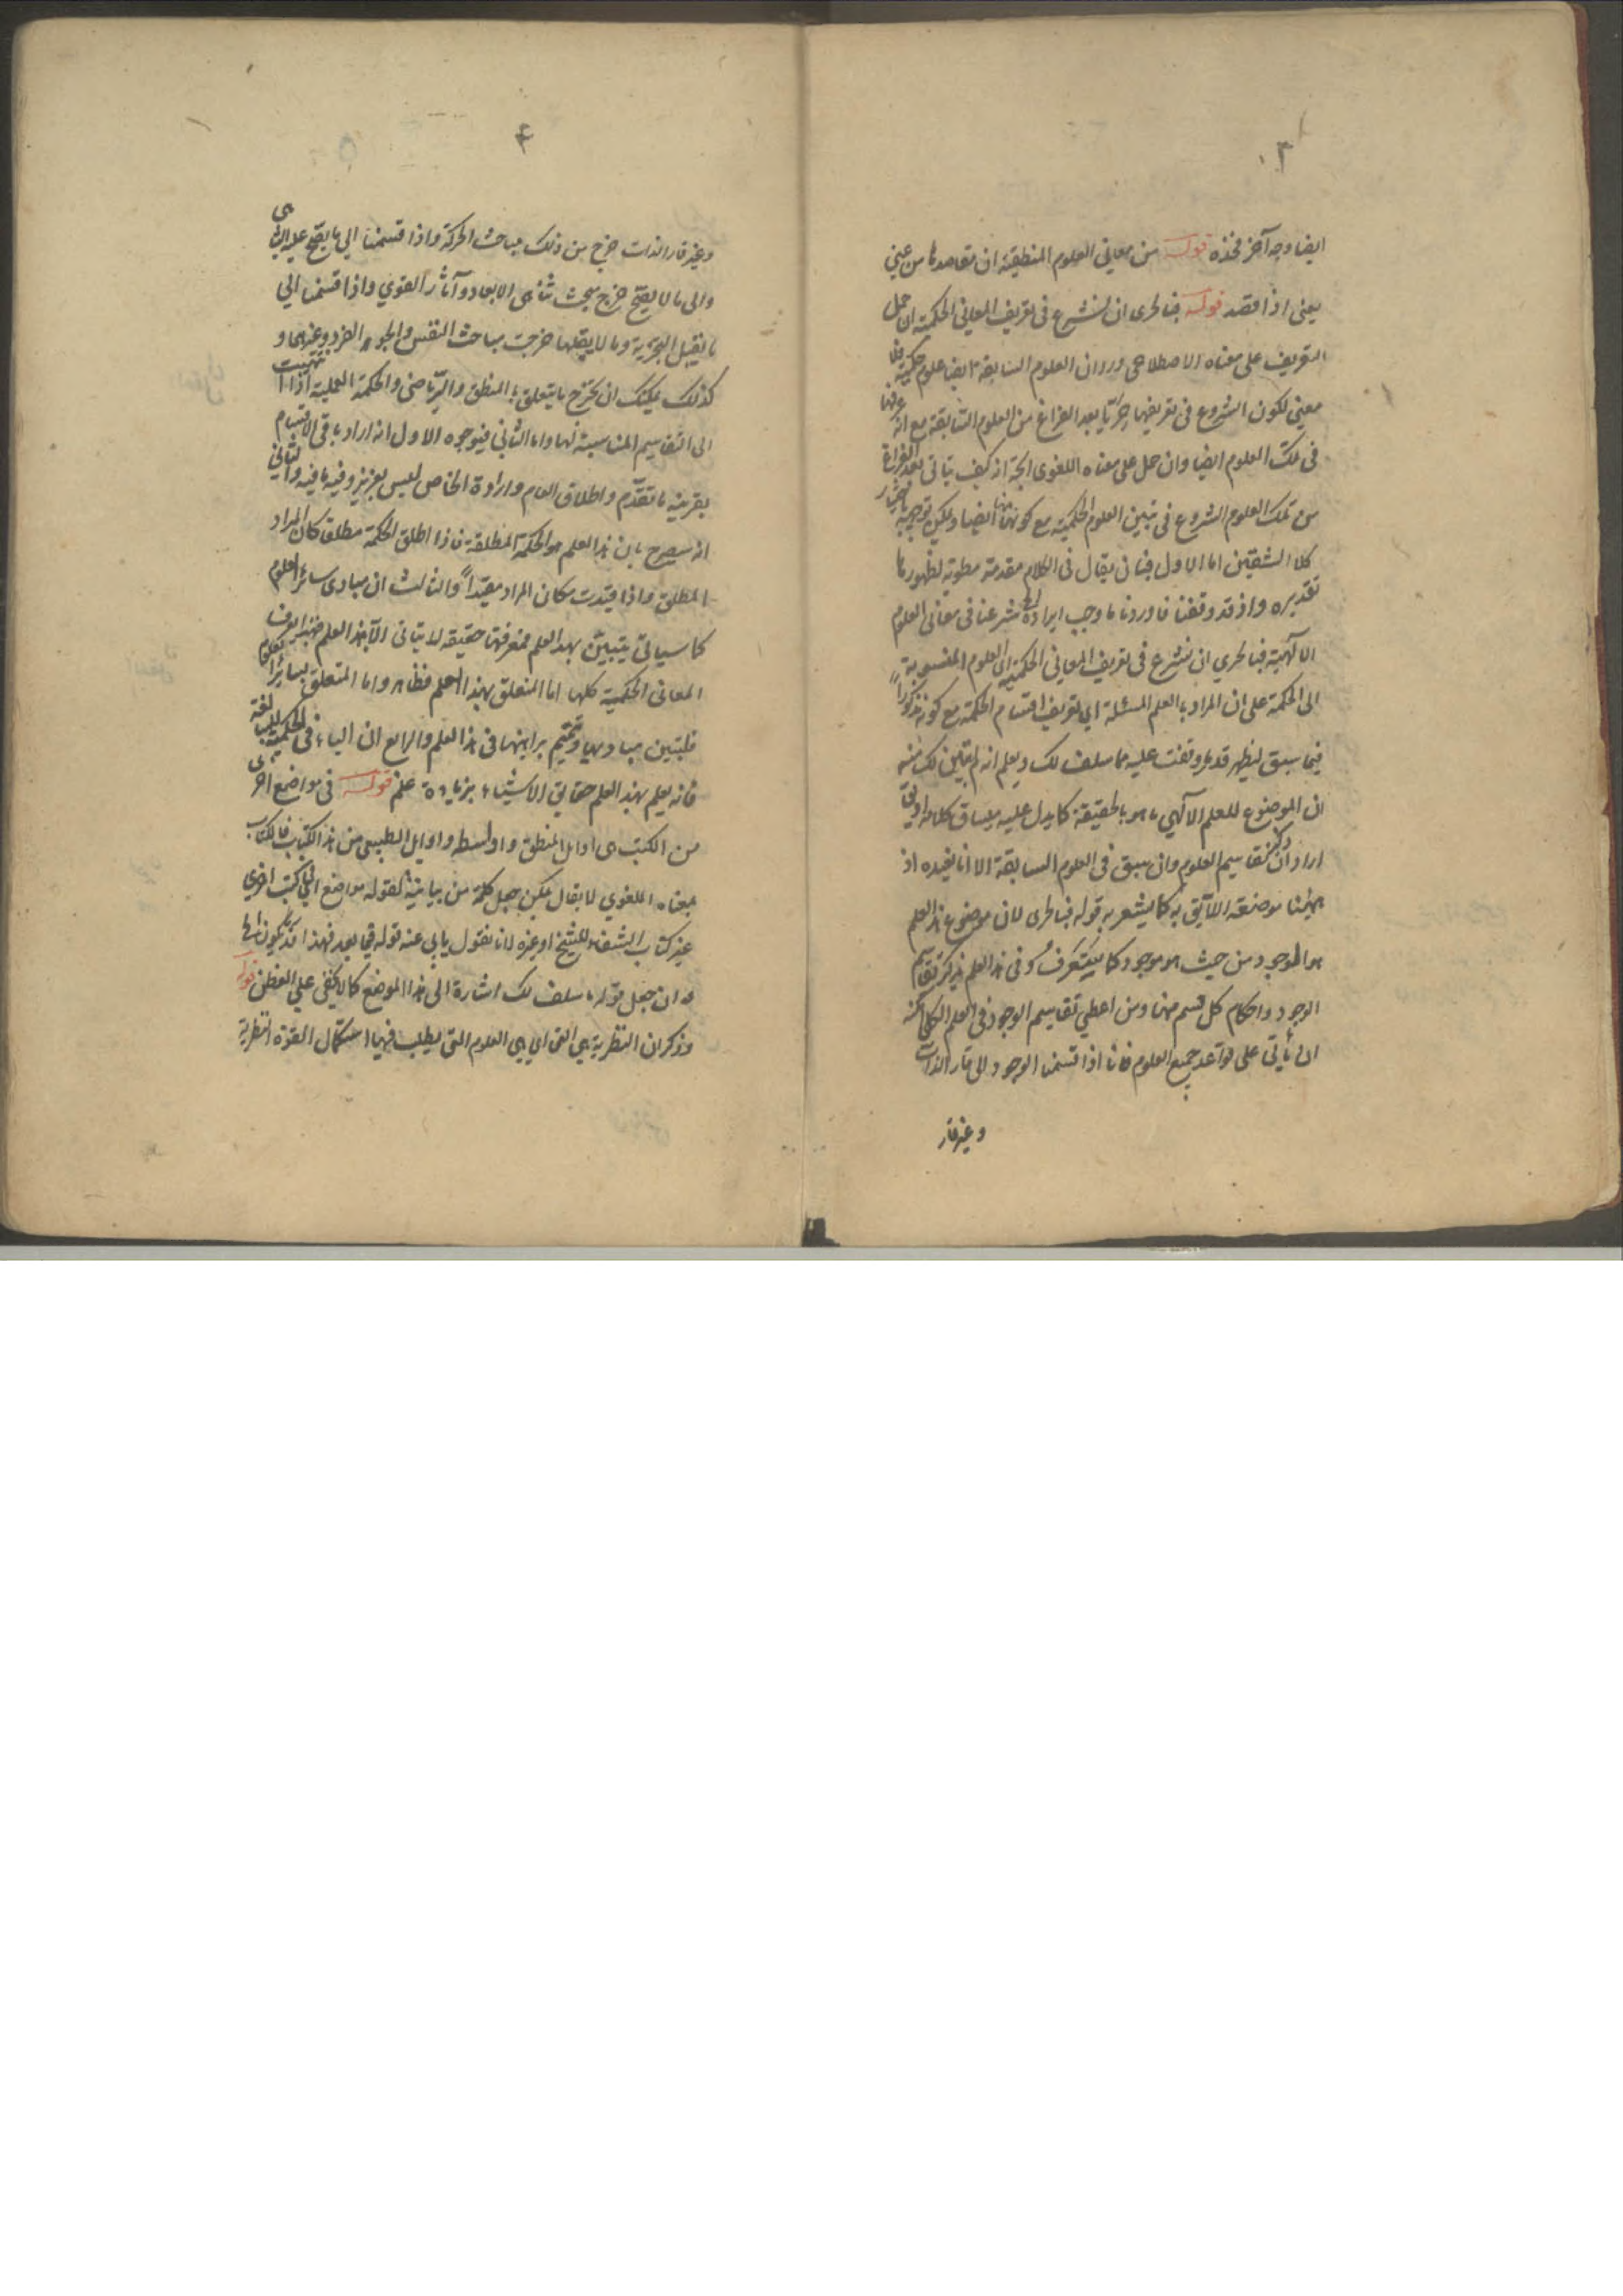 ٣
ايضا وجه آخر فخذه قوله من معاني العلوم المنطقية ان مقاصدها من عيني
يعنى اذا قصد قوله فبالحرى ان نشرع فى تعريف المعاني الحكمية ان حمل
التعريف على معناه الاصطلاحى ورد ان العلوم السابقة ايضا علوم حكمية فلا
معنى لكون الشروع فى تعريفها حريّا بعد الفراغ من العلوم السابقة مع انه عرفها
فى تلك العلوم ايضا وان حمل على معناه اللغوى اتجه انه كيف يتاتى بعد الفراغ
من تلك العلوم الشروع فى تبيين العلوم الحكمية مع كونها منها ايضا ويمكن توجيهه باختيار
كلا الشقين اما الاول فبان يقال فى الكلام مقدمة مطوية لظهورها
تقديره واذ قد وقفنا فاوردنا ما وجب ايراده شرعنا فى معانى العلوم
الالهية فبالحري ان نشرع فى تعريف المعاني الحكمية اى العلوم المنسوبة
الى الحكمة على ان المراد بالعلم المسئلة اي تعريف اقسام الحكمة مع كونه مذكوراً
فيما سبق ليظهر قدر ما وقفت عليه مما سلف لك ويعلم انه لم يتبين لك منه
ان الموضوع للعلم الالهي ما هو بالحقيقة كما يدل عليه مساق كلامه او يق
اراد ان ذكر تقاسيم العلوم وان سبق فى العلوم السابقة الا انا نعيده اذ
ههنا موضعه اللايق به كما يشعر به قوله فبالحرى لان موضوع هذا العلم
هو الموجود من حيث هو موجود كما ستعرفُ وفى هذا العلم يذكر تقاسيم
الوجود واحكام كل قسم منها ومن اعطي تقاسيم الوجود فى العلم الكلى امكنه
ان يأتى على قواعد جميع العلوم فانا اذا قسمنا الوجود الى قار الذات
وغير قار
٤
وغير قار الذات خرج من ذلك مباحث الحركة واذا قسمنا الي ما يصح عليه التناهى
والى ما لا يصح خرج بحث تناهى الابعاد وآثار القوي واذا قسمنا الي
ما يقبل التجزية وما لا يقبلها خرجت مباحث النفس والجوهر الفرد وغيرهما و
كذلك يمكنك ان تخرج ما يتعلق بالمنطق والرياضى والحكمة العملية اذا انتهيت
الى التقاسيم المناسبة لها واما الثاني فبوجوه الاول انه اراد باقى الاقسام
بقرينة ما تقدّم واطلاق العام وارادة الخاص ليس بعزيز وفيه ما فيه والثاني
انه سيصرح بان هذا العلم هو الحكمة المطلقة فاذا اطلق الحكمة مطلق كان المراد
المطلق واذا قيّدت كان المراد مقيّداً والثالث ان مبادى سائر العلوم
كما سياتى يتبيّن بهذا العلم فمعرفتها حقيقة لا يتاتى الا بهذا العلم فبهذا يعرف
المعانى الحكمية كلها اما المتعلق بهذا العلم فظاهر واما المتعلق بسائر العلوم
فلتبين مباديها وتتميم براهينها فى هذا العلم والرابع ان الياء فى الحكمية للمبالغة
فانه يعلم بهذا العلم حقايق الاشياء بزيادة علم قوله فى مواضع اخرى
من الكتب اى اوايل المنطق واواسطه واوايل الطبيعى من هذا الكتاب فالكتاب
بمعناه اللغوي لا يقال يمكن جعل كلمة من بيانية لقوله مواضع اى فى كتب اخري
غير كتاب الشفاء للشيخ او غيره لانا نقول يابى عنه قوله فيما بعد فهذا قد يكون
الا ان جعل قوله ما سلف لك اشارة الى هذا الموضع كما لا يخفى علي الفطن قوله
وذكر ان النظرية هي التى اي هي العلوم التى يطلب فيها استكمال القوة النظرية